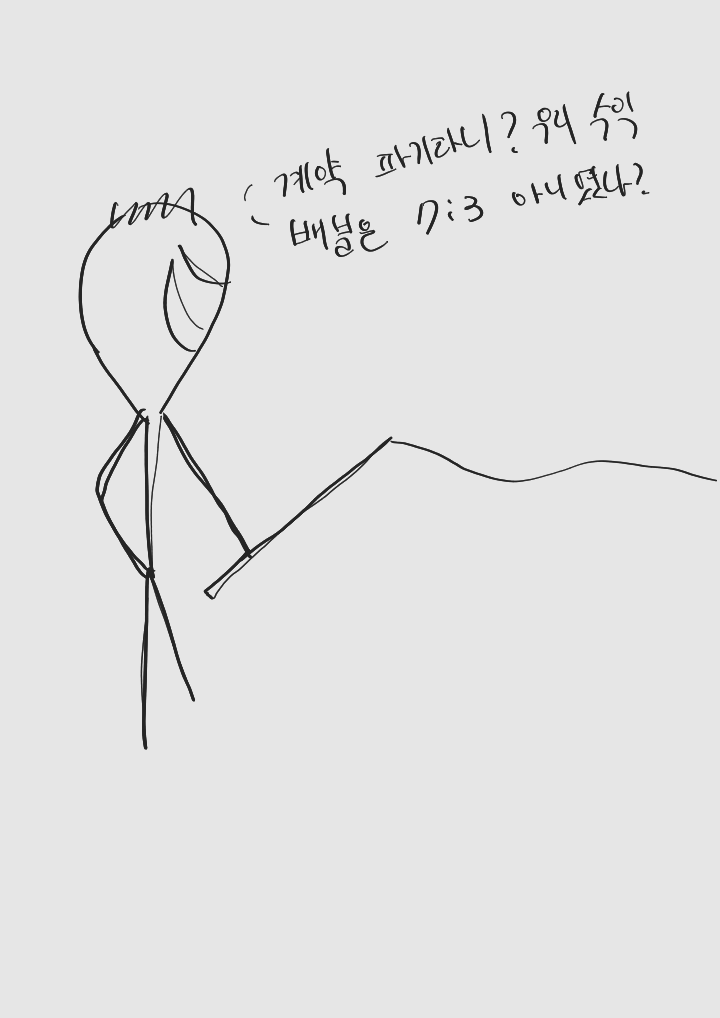 계약 파기라니? 우리 수익
배분은 7:3 아니였나?